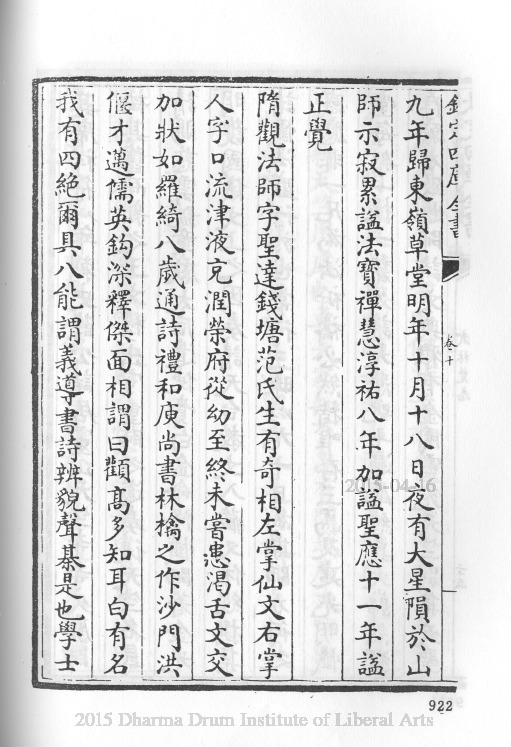 欽定四庫全書
卷十
九年歸東嶺草堂明年十月十八日夜有大星隕於山
師示寂累諡法寶禪慧淳祐八年加諡聖應十一年諡
正覺
隋觀法師字聖達錢塘范氏生有奇相左掌仙文右掌
人字口流津液充潤榮府從幼至終未嘗患渴舌文交
加狀如羅綺八歲通詩禮和庾尚書林檎之作沙門洪
偃才邁儒英鈎深釋傑面相謂曰顴髙多知耳白有名
我有四絶爾具八能謂義導書詩辨貌聲棊是也學士
2015-04-16
922
2015 Dharma Drum Institute of Liberal Arts